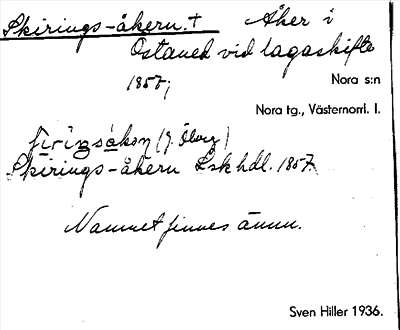 Skirings-åkern. + Åker i
Östanek vid lagaskifte
1857;
Nora s:n
Nora tg., Västernorrl. l.
(J. Öberg)
Skirings-åkern Lsk hdl. 1857.
Namnet finnes ännu.
Sven Hiller 1936.